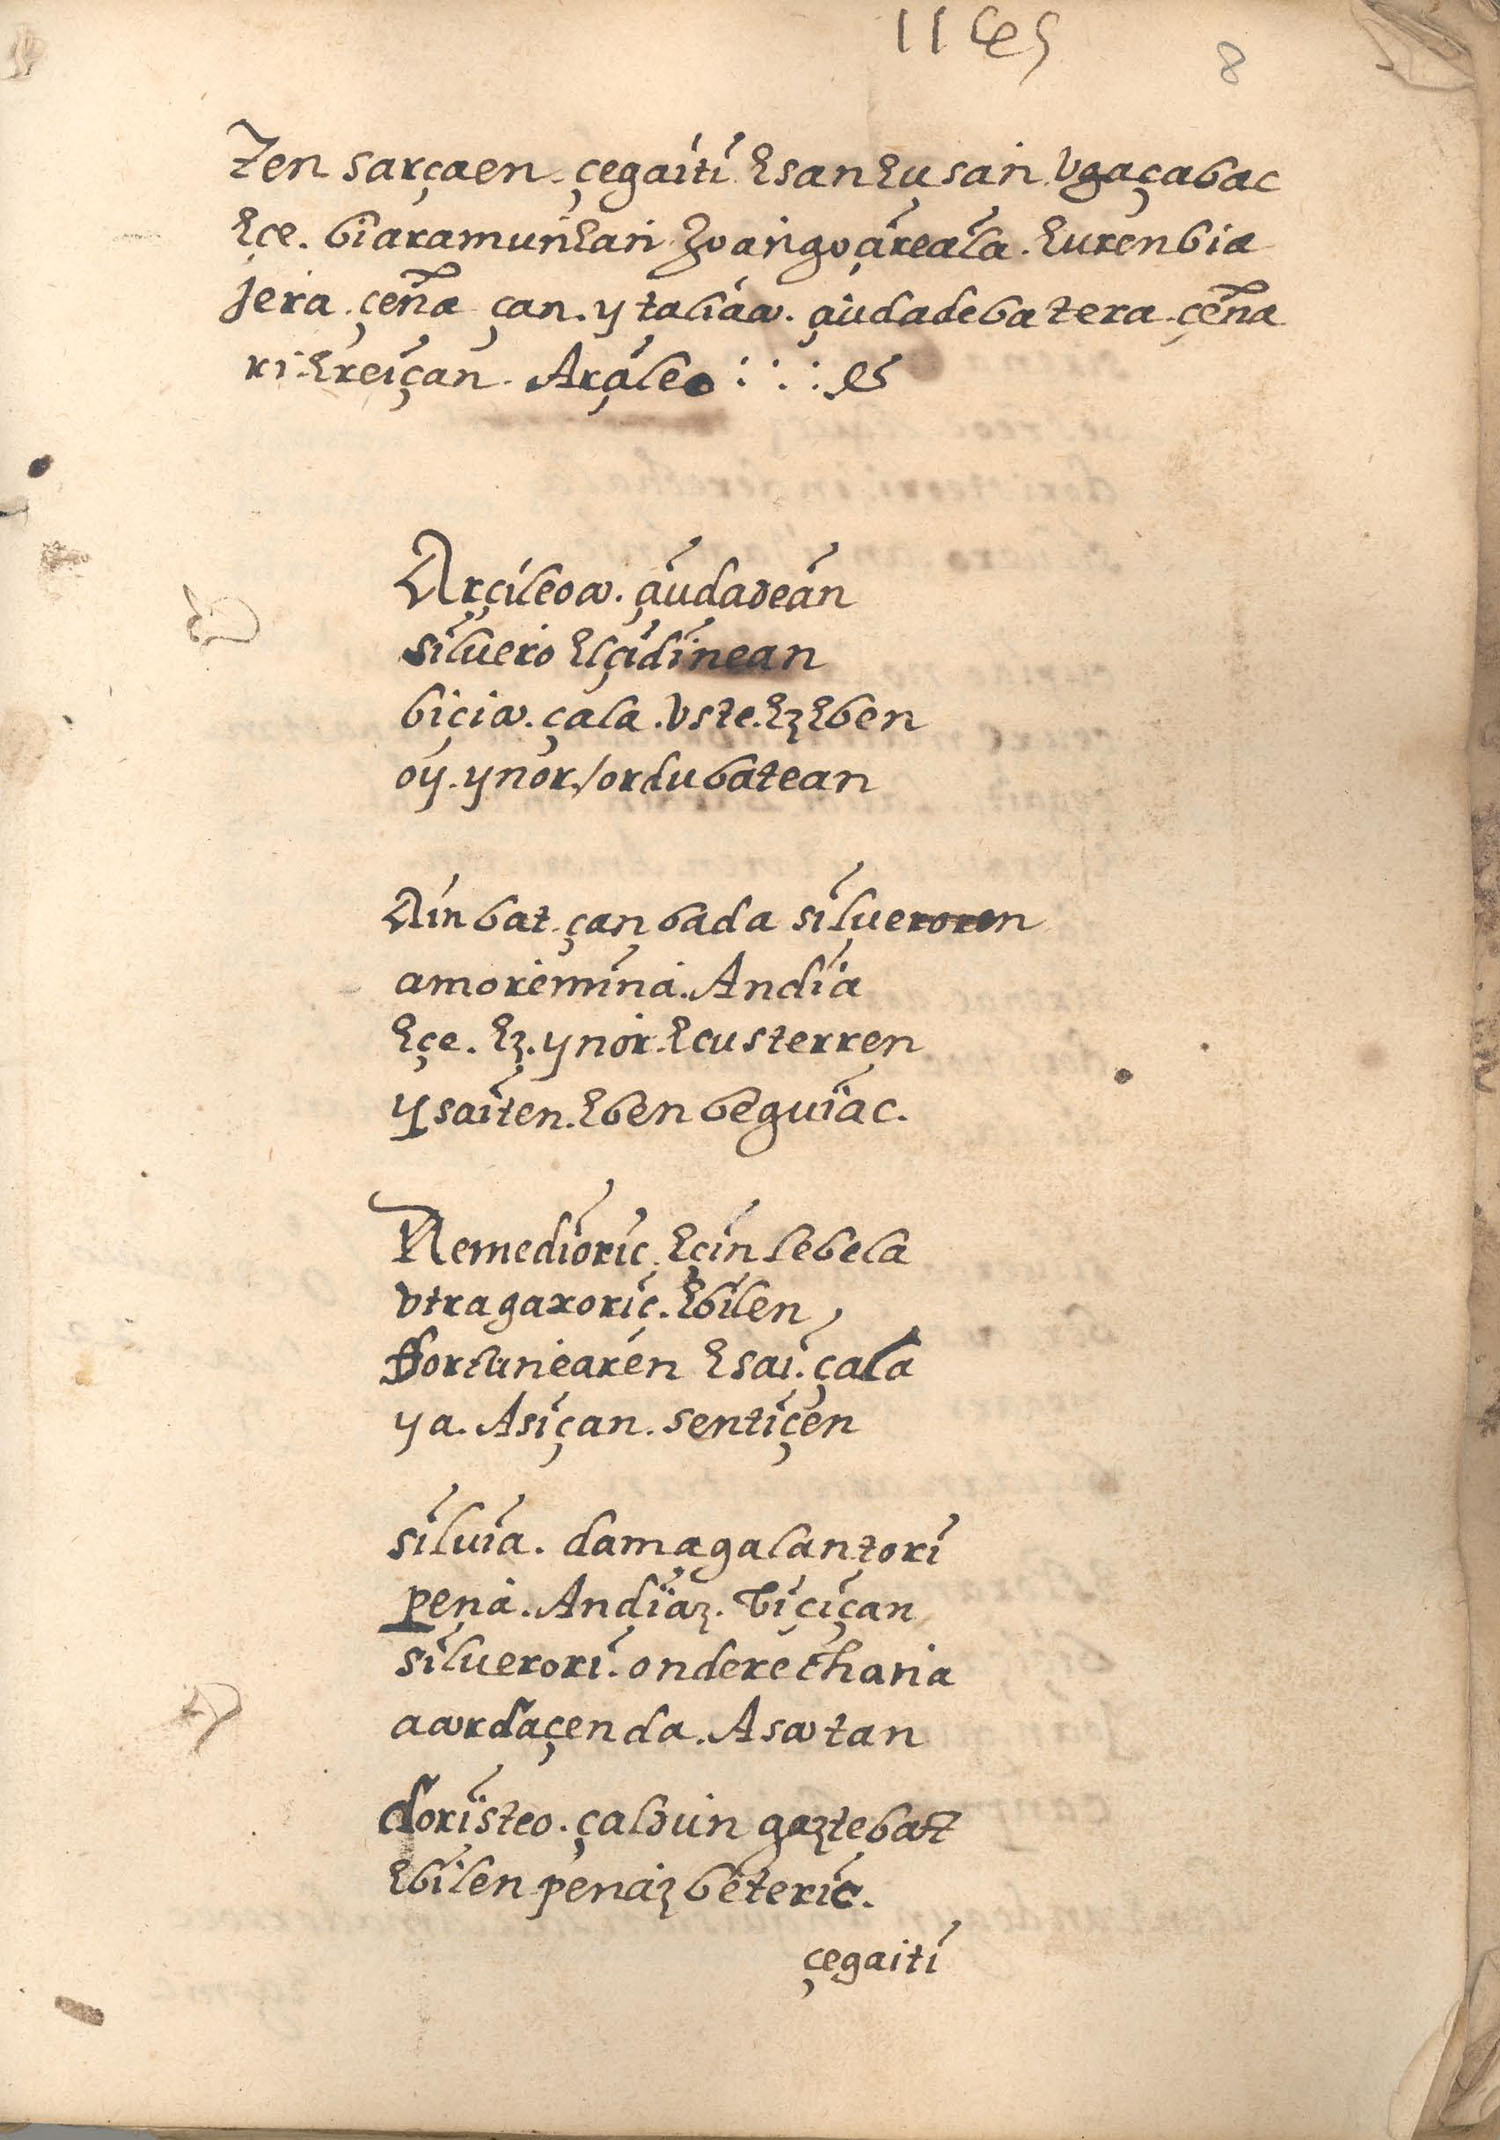 11
8
ten sarçaen. çegaiti esan eusan vgaçabac
eçe. biaramunean Joango áreala. eurenbia
jera. çeña çan. ytaliáa. çiudadebatera. çeña
ri ereiçan. Arçileo
Arçileoa. çiudadeán
siluero elçidinean
biçia. çala. vste. ez eben
oy. ynor. / ordubatean
Ain bat. çan bada silueroren
amoremina. Andia
eçe. ez. ynor. ecusterren
ysaiten. eben beguiac.
Remedioric. eçin lebela
vtragaxoric. ebilen
ffortuniearen esai. çala
ya. Asiçan. sentiçen
siluia. damagalantori
pena. Andiaz. biçiçan
siluerori. onderechana
aardaçenda. Asatan
doristeo. çaldun gaztebat
ebilen penaz beteric.
çegaiti